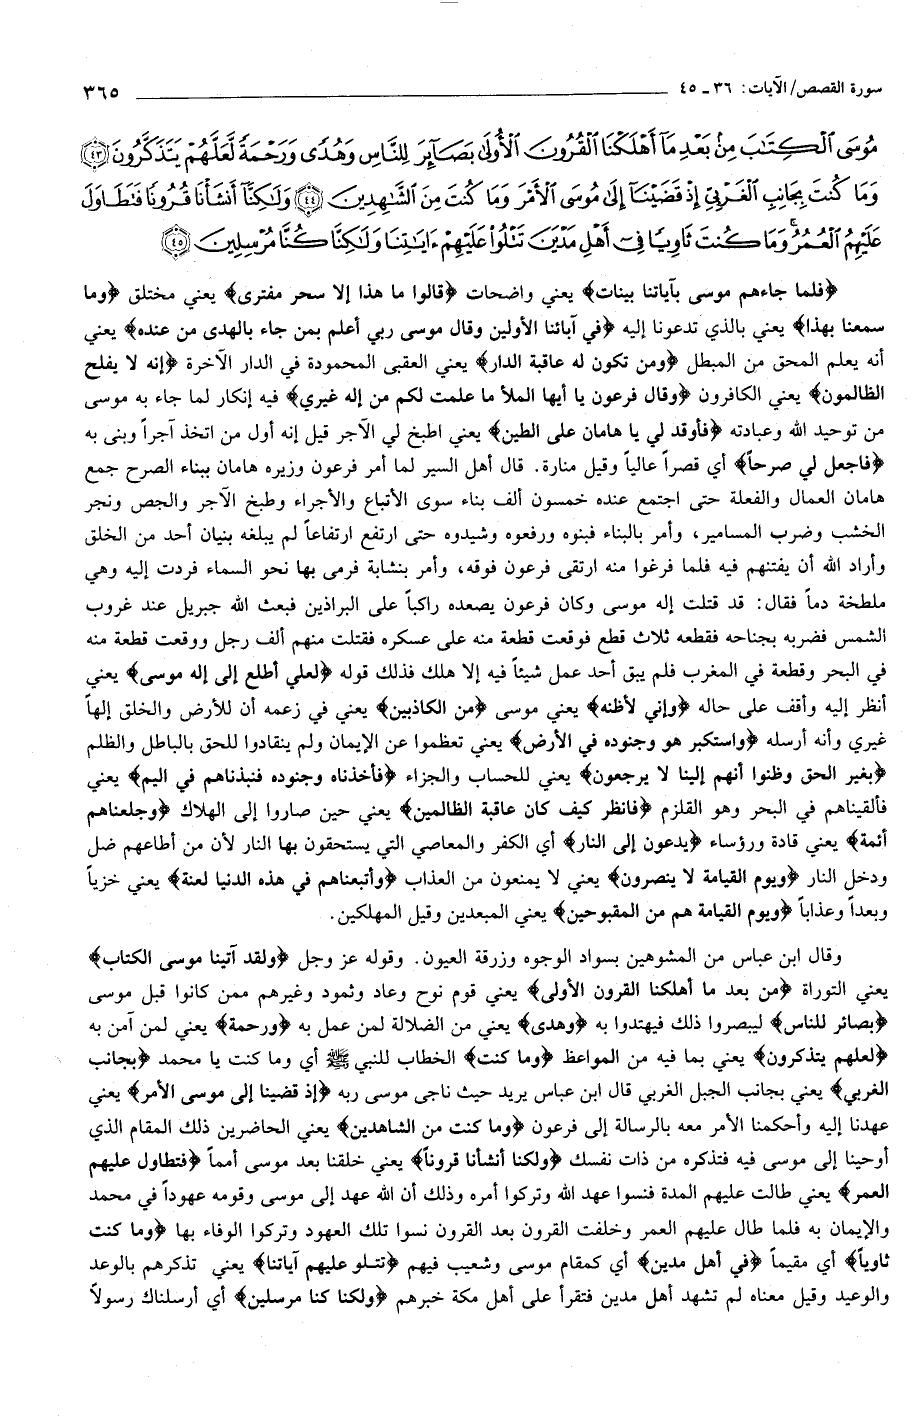 سورة القصص/الآيات: ٣٦ ـ ٤٥ ٣٦٥
مُوسَى ٱلْكِتَٰبَ مِنۢ بَعْدِ مَآ أَهْلَكْنَا ٱلْقُرُونَ ٱلْأُولَىٰ بَصَآئِرَ لِلنَّاسِ وَهُدًى وَرَحْمَةً لَّعَلَّهُمْ يَتَذَكَّرُونَ ٤٣
وَمَا كُنتَ بِجَانِبِ ٱلْغَرْبِىِّ إِذْ قَضَيْنَآ إِلَىٰ مُوسَى ٱلْأَمْرَ وَمَا كُنتَ مِنَ ٱلشَّٰهِدِينَ ٤٤ وَلَٰكِنَّآ أَنشَأْنَا قُرُونًا فَتَطَاوَلَ
عَلَيْهِمُ ٱلْعُمُرُ ۚ وَمَا كُنتَ ثَاوِيًا فِىٓ أَهْلِ مَدْيَنَ تَتْلُوا۟ عَلَيْهِمْ ءَايَٰتِنَا وَلَٰكِنَّا كُنَّا مُرْسِلِينَ ٤٥
﴿فلما جاءهم موسى بآياتنا بينات﴾ يعني واضحات ﴿قالوا ما هذا إلا سحر مفترى﴾ يعني مختلق ﴿وما
سمعنا بهذا﴾ يعني بالذي تدعونا إليه ﴿في آبائنا الأولين وقال موسى ربي أعلم بمن جاء بالهدى من عنده﴾ يعني
أنه يعلم المحق من المبطل ﴿ومن تكون له عاقبة الدار﴾ يعني العقبى المحمودة في الدار الآخرة ﴿إنه لا يفلح
الظالمون﴾ يعني الكافرون ﴿وقال فرعون يا أيها الملأ ما علمت لكم من إله غيري﴾ فيه إنكار لما جاء به موسى
من توحيد الله وعبادته ﴿فأوقد لي يا هامان على الطين﴾ يعني اطبخ لي الآجر قيل إنه أول من اتخذ آجراً وبنى به
﴿فاجعل لي صرحاً﴾ أي قصراً عالياً وقيل منارة. قال أهل السير لما أمر فرعون وزيره هامان ببناء الصرح جمع
هامان العمال والفعلة حتى اجتمع عنده خمسون ألف بناء سوى الأتباع والأجراء وطبخ الآجر والجص ونجر
الخشب وضرب المسامير، وأمر بالبناء فبنوه ورفعوه وشيدوه حتى ارتفع ارتفاعاً لم يبلغه بنيان أحد من الخلق
وأراد الله أن يفتنهم فيه فلما فرغوا منه ارتقى فرعون فوقه، وأمر بنشابة فرمى بها نحو السماء فردت إليه وهي
ملطخة دماً فقال: قد قتلت إله موسى وكان فرعون يصعده راكباً على البراذين فبعث الله جبريل عند غروب
الشمس فضربه بجناحه فقطعه ثلاث قطع فوقعت قطعة منه على عسكره فقتلت منهم ألف رجل ووقعت قطعة منه
في البحر وقطعة في المغرب فلم يبق أحد عمل شيئاً فيه إلا هلك فذلك قوله ﴿لعلي أطلع إلى إله موسى﴾ يعني
أنظر إليه وأقف على حاله ﴿وإني لأظنه﴾ يعني موسى ﴿من الكاذبين﴾ يعني في زعمه أن للأرض والخلق إلهاً
غيري وأنه أرسله ﴿واستكبر هو وجنوده في الأرض﴾ يعني تعظموا عن الإيمان ولم ينقادوا للحق بالباطل والظلم
﴿بغير الحق وظنوا أنهم إلينا لا يرجعون﴾ يعني للحساب والجزاء ﴿فأخذناه وجنوده فنبذناهم في اليم﴾ يعني
فألقيناهم في البحر وهو القلزم ﴿فانظر كيف كان عاقبة الظالمين﴾ يعني حين صاروا إلى الهلاك ﴿وجلعناهم
أئمة﴾ يعني قادة ورؤساء ﴿يدعون إلى النار﴾ أي الكفر والمعاصي التي يستحقون بها النار لأن من أطاعهم ضل
ودخل النار ﴿ويوم القيامة لا ينصرون﴾ يعني لا يمنعون من العذاب ﴿وأتبعناهم في هذه الدنيا لعنة﴾ يعني خزياً
وبعداً وعذاباً ﴿ويوم القيامة هم من المقبوحين﴾ يعني المبعدين وقيل المهلكين.
وقال ابن عباس من المشوهين بسواد الوجوه وزرقة العيون. وقوله عز وجل ﴿ولقد آتينا موسى الكتاب﴾
يعني التوراة ﴿من بعد ما أهلكنا القرون الأولى﴾ يعني قوم نوح وعاد وثمود وغيرهم ممن كانوا قبل موسى
﴿بصائر للناس﴾ ليبصروا ذلك فيهتدوا به ﴿وهدى﴾ يعني من الضلالة لمن عمل به ﴿ورحمة﴾ يعني لمن آمن به
﴿لعلهم يتذكرون﴾ يعني بما فيه من المواعظ ﴿وما كنت﴾ الخطاب للنبي ﷺ أي وما كنت يا محمد ﴿بجانب
الغربي﴾ يعني بجانب الجبل الغربي قال ابن عباس يريد حيث ناجى موسى ربه ﴿إذ قضينا إلى موسى الأمر﴾ يعني
عهدنا إليه وأحكمنا الأمر معه بالرسالة إلى فرعون ﴿وما كنت من الشاهدين﴾ يعني الحاضرين ذلك المقام الذي
أوحينا إلى موسى فيه فتذكره من ذات نفسك ﴿ولكنا أنشأنا قروناً﴾ يعني خلقنا بعد موسى أمماً ﴿فتطاول عليهم
العمر﴾ يعني طالت عليهم المدة فنسوا عهد الله وتركوا أمره وذلك أن الله عهد إلى موسى وقومه عهوداً في محمد
والإيمان به فلما طال عليهم العمر وخلفت القرون بعد القرون نسوا تلك العهود وتركوا الوفاء بها ﴿وما كنت
ثاوياً﴾ أي مقيماً ﴿في أهل مدين﴾ أي كمقام موسى وشعيب فيهم ﴿تتلو عليهم آياتنا﴾ يعني تذكرهم بالوعد
والوعيد وقيل معناه لم تشهد أهل مدين فتقرأ على أهل مكة خبرهم ﴿ولكنا كنا مرسلين﴾ أي أرسلناك رسولاً